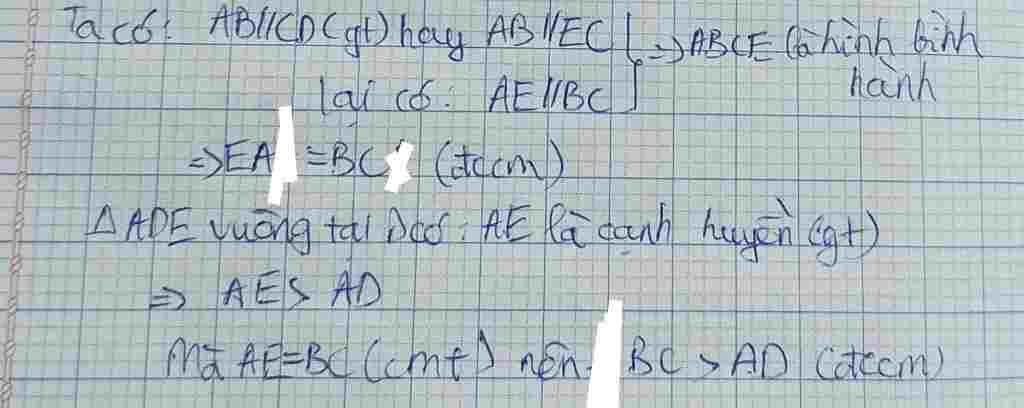 Ta có: AB//CD (gt) hay AB//EC } => ABCE là hình bình
lại có: AE//BC hành
=> EA = BC (đccm)
Δ ADE vuông tại D có: AE là cạnh huyền (gt)
=> AE > AD
Mà AE=BC (cmt) nên BC > AD (đccm)